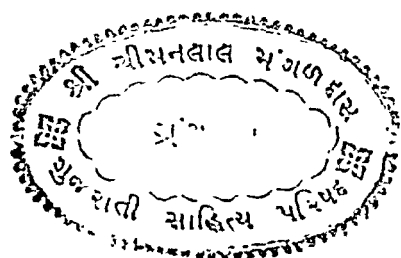 શ્રી ચીમનલાલ મંગળદાસ
ગુજરાતી સાહિત્ય પરિષદ